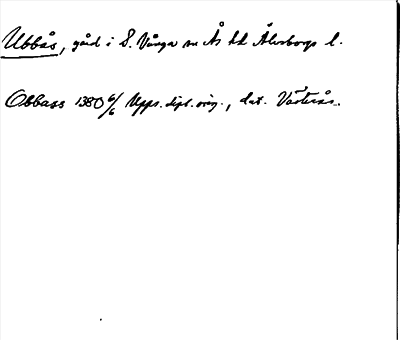 Ubbås, gård i S. Vånga sn Ås hd Älvsborgs l.
Obbass 1380 6/6 Upps. dipl. orig., dat. Västerås.